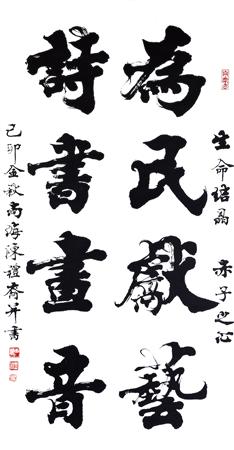 生命結晶 赤子之心
為民獻藝
詩書畫音
己卯金秋南海陳禮并書